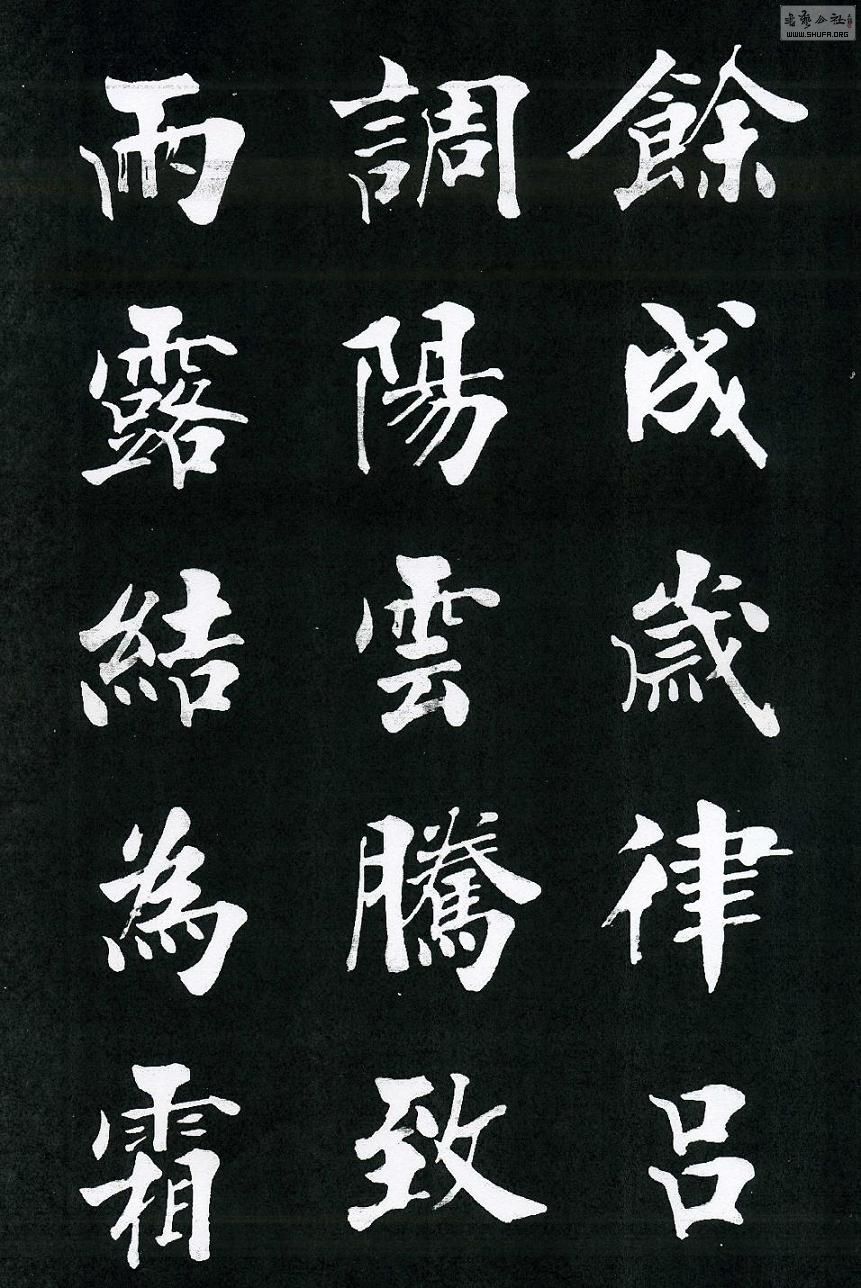 餘成歲律呂
調陽雲騰致
雨露結為霜
WWW.SHUFA.ORG